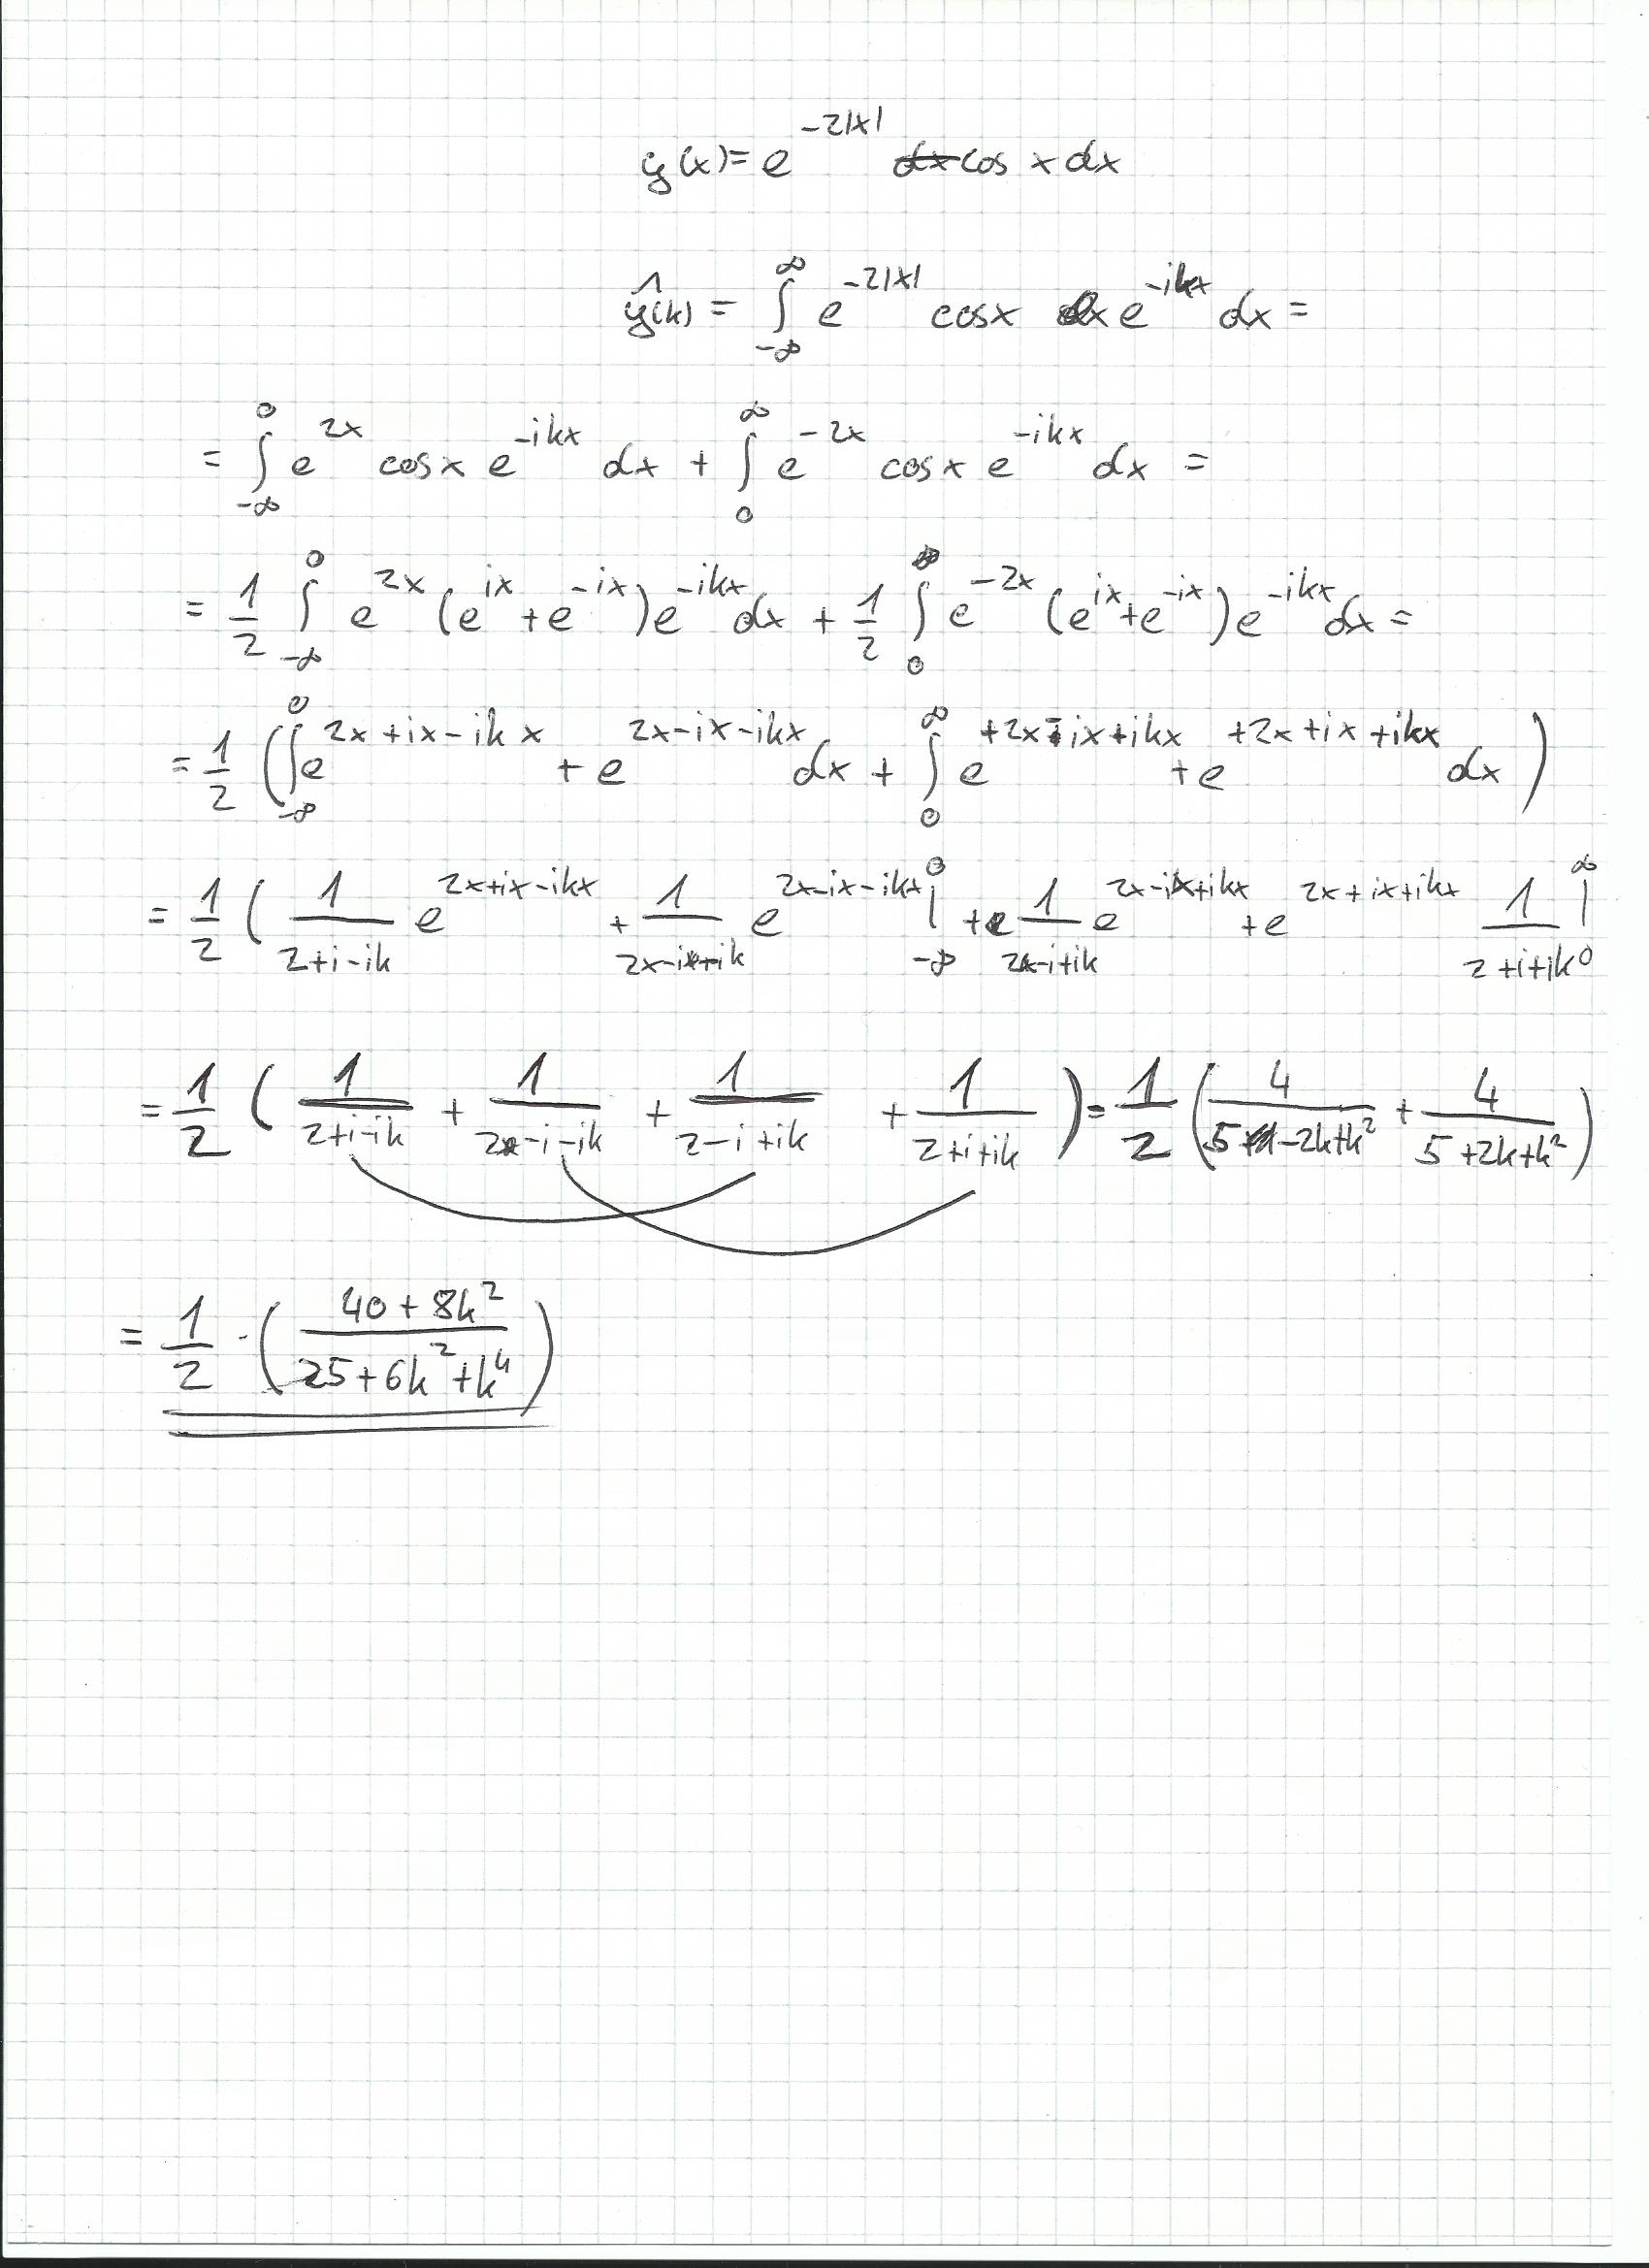 y(x) = e^{-2|x|} cos x dx
ŷ(k) = ∫_{-∞}^{∞} e^{-2|x|} cos x e^{-ikx} dx =
= ∫_{-∞}^{0} e^{2x} cos x e^{-ikx} dx + ∫_{0}^{∞} e^{-2x} cos x e^{-ikx} dx =
= 1/2 ∫_{-∞}^{0} e^{2x} (e^{ix} + e^{-ix}) e^{-ikx} dx + 1/2 ∫_{0}^{∞} e^{-2x} (e^{ix} + e^{-ix}) e^{-ikx} dx =
= 1/2 ( ∫_{-∞}^{0} e^{2x+ix-ikx} + e^{2x-ix-ikx} dx + ∫_{0}^{∞} e^{+2x-ix+ikx} + e^{+2x+ix+ikx} dx )
= 1/2 ( 1/(2+i-ik) e^{2x+ix-ikx} + 1/(2x-i-ik) e^{2x-ix-ikx} |_{-∞}^{0} + 1/(2-i+ik) e^{2x-ix+ikx} + e^{2x+ix+ikx} 1/(2+i+ik) |_{0}^{∞}
= 1/2 ( 1/(2+i-ik) + 1/(2-i-ik) + 1/(2-i+ik) + 1/(2+i+ik) ) = 1/2 ( 4/(5-2k+k^2) + 4/(5+2k+k^2) )
= 1/2 · ( (40+8k^2)/(25+6k^2+k^4) )